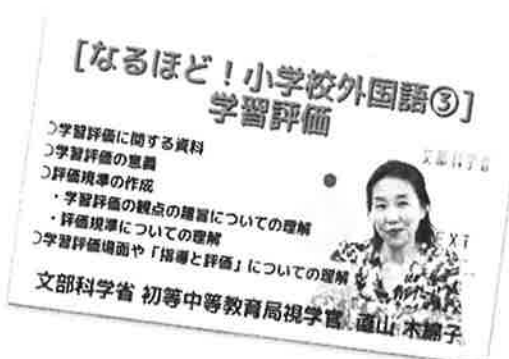 [なるほど!小学校外国語③]
学習評価
○学習評価に関する資料
○学習評価の意義
○評価規準の作成
・学習評価の観点の趣旨についての理解
・評価規準についての理解
○学習評価場面や「指導と評価」についての理解
文部科学省
EXT
文部科学省 初等中等教育局視学官 直山 木綿子